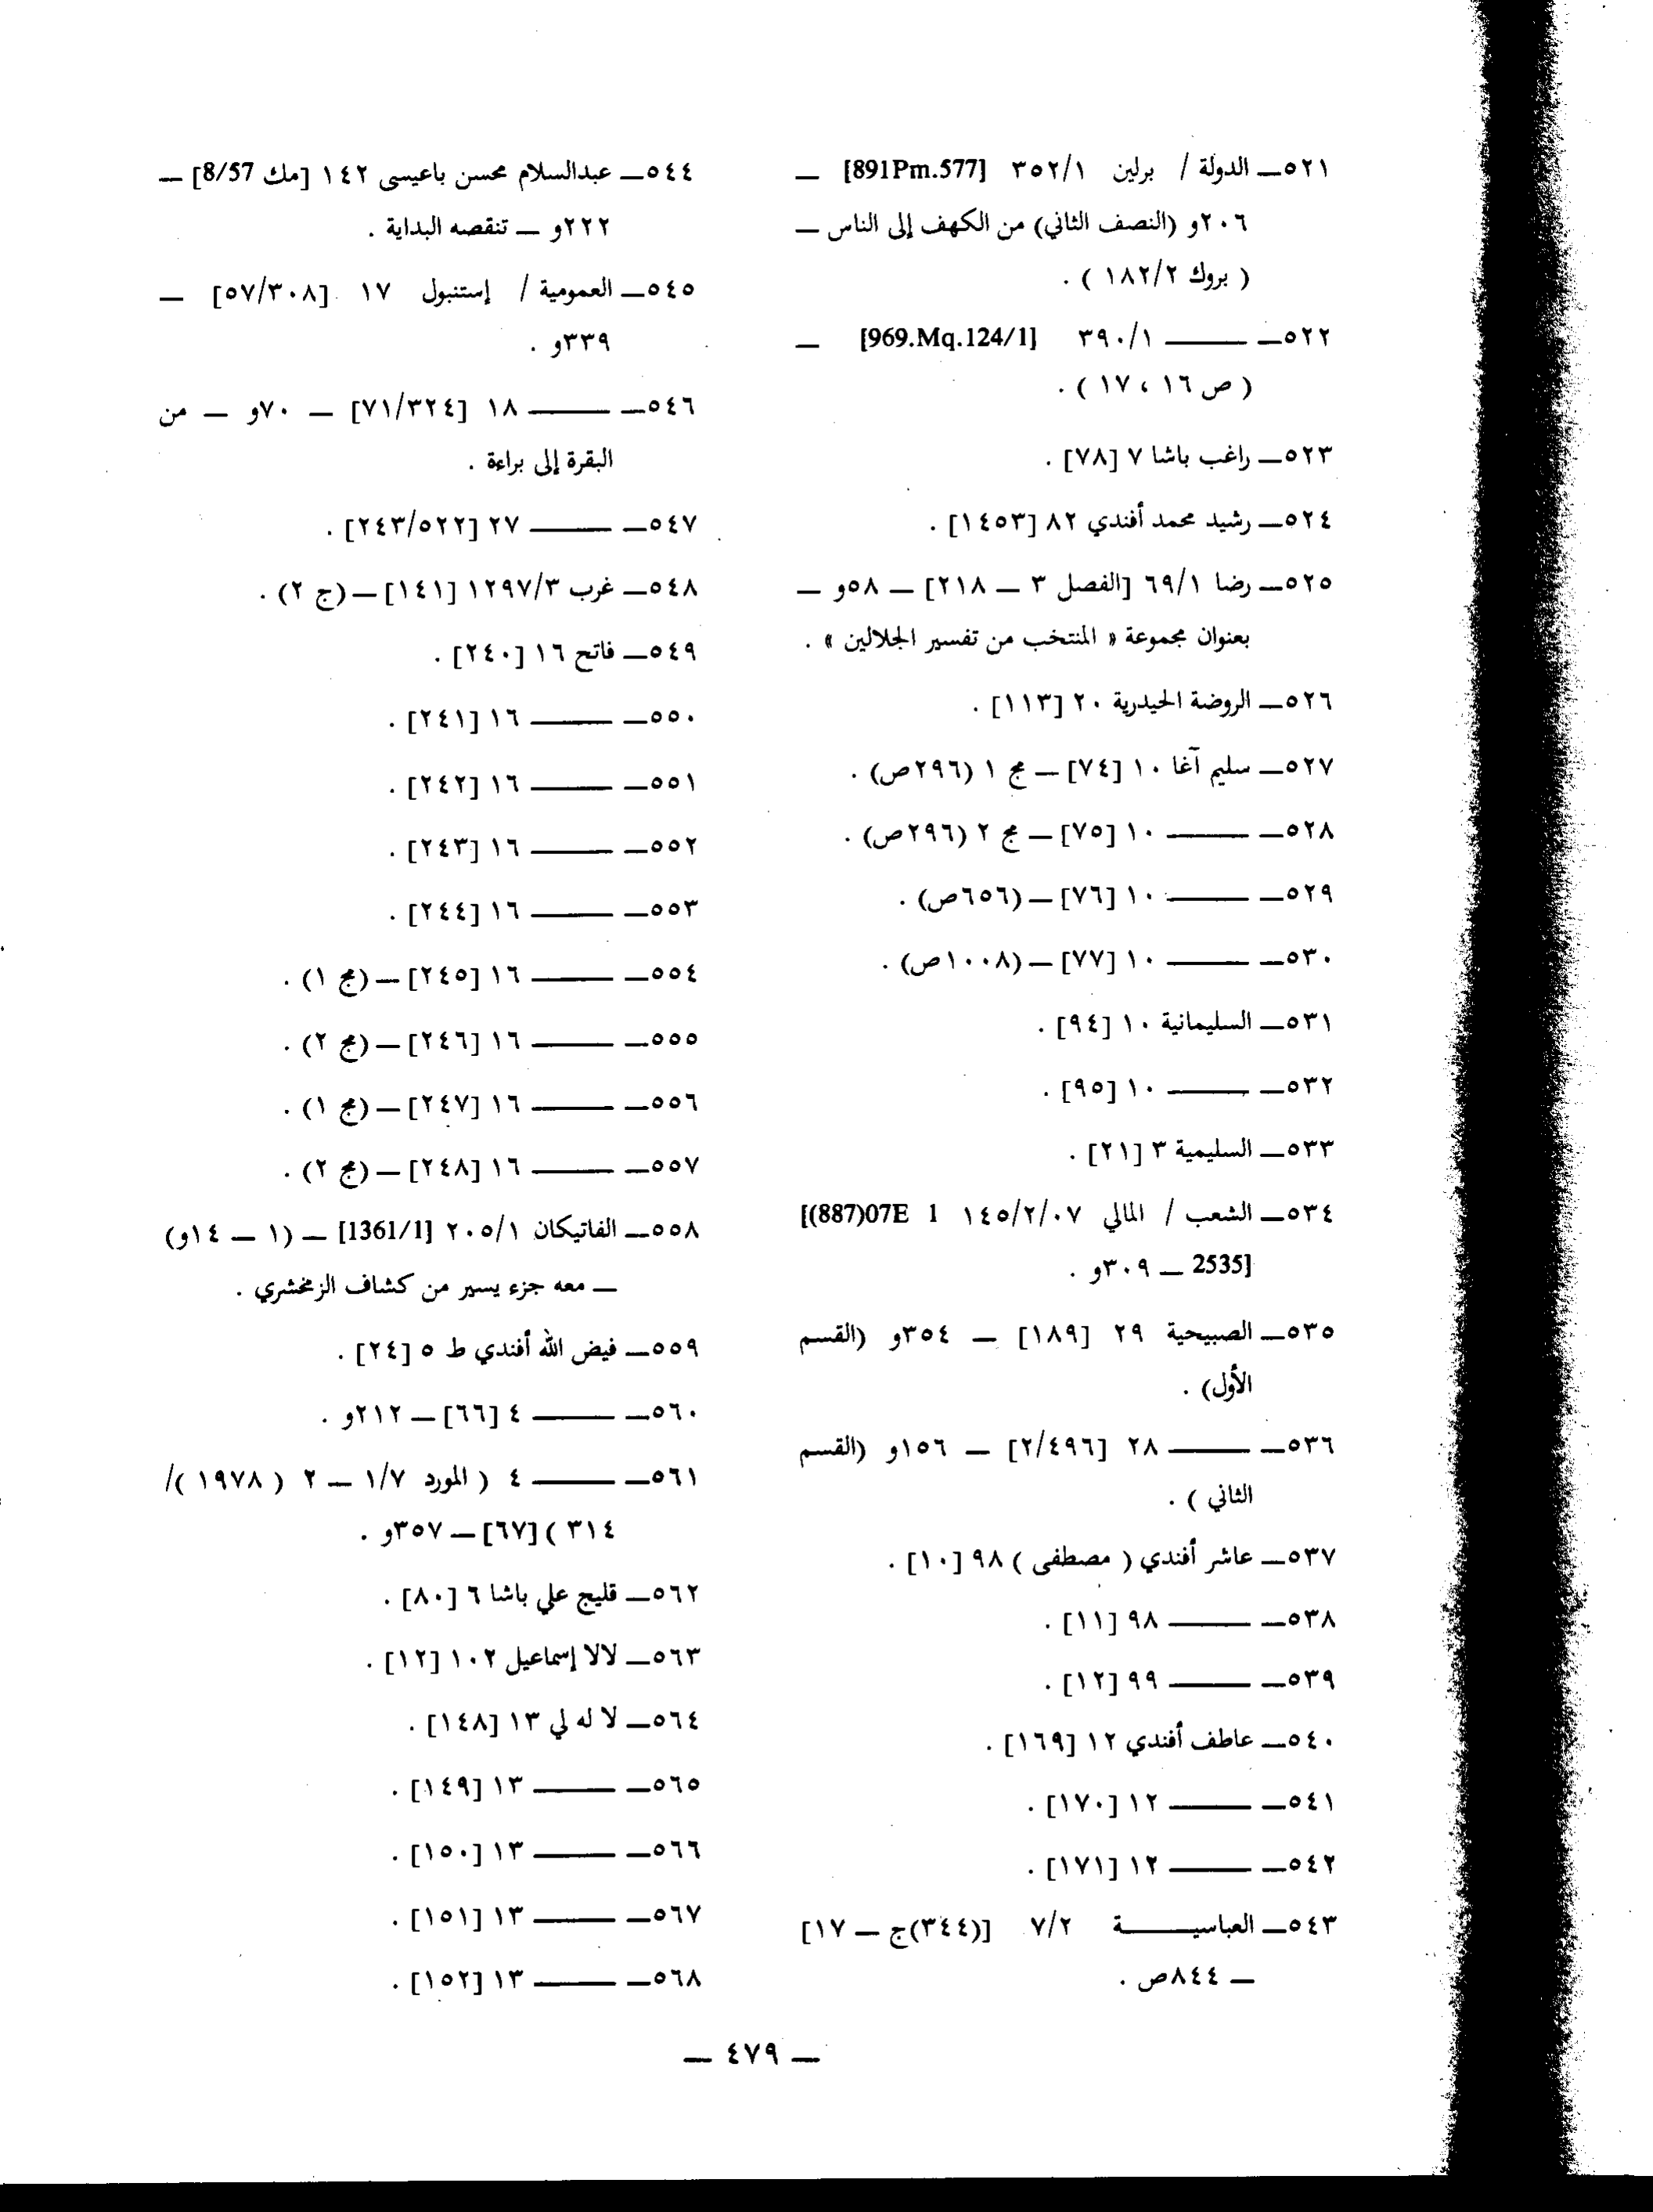 ٥٢١ــ الدولة / برلين ٣٥٢/١ [891Pm.577] ــ
٢٠٦و (النصف الثاني) من الكهف إلى الناس ــ
( بروك ١٨٢/٢ ) .
٥٢٢ــ ــــــــ ٣٩٠/١ [969.Mq.124/1] ــ
( ص ١٦ ، ١٧ ) .
٥٢٣ــ راغب باشا ٧ [٧٨] .
٥٢٤ــ رشيد محمد أفندي ٨٢ [١٤٥٣] .
٥٢٥ــ رضا ٦٩/١ [الفصل ٣ ــ ٢١٨] ــ ٥٨و ــ
بعنوان مجموعة « المنتخب من تفسير الجلالين » .
٥٢٦ــ الروضة الحيدرية ٢٠ [١١٣] .
٥٢٧ــ سليم آغا ١٠ [٧٤] ــ مج ١ (٢٩٦ص) .
٥٢٨ــ ــــــــ ١٠ [٧٥] ــ مج ٢ (٢٩٦ص) .
٥٢٩ــ ــــــــ ١٠ [٧٦] ــ (٦٥٦ص) .
٥٣٠ــ ــــــــ ١٠ [٧٧] ــ (١٠٠٨ص) .
٥٣١ــ السليمانية ١٠ [٩٤] .
٥٣٢ــ ــــــــ ١٠ [٩٥] .
٥٣٣ــ السليمية ٣ [٢١] .
٥٣٤ــ الشعب / المالي ١٤٥/٢/٠٧ [(887)07E 1
2535] ــ ٣٠٩و .
٥٣٥ــ الصبيحية ٢٩ [١٨٩] ــ ٣٥٤و (القسم
الأول) .
٥٣٦ــ ــــــــ ٢٨ [٢/٤٩٦] ــ ١٥٦و (القسم
الثاني ) .
٥٣٧ــ عاشر أفندي ( مصطفى ) ٩٨ [١٠] .
٥٣٨ــ ــــــــ ٩٨ [١١] .
٥٣٩ــ ــــــــ ٩٩ [١٢] .
٥٤٠ــ عاطف أفندي ١٢ [١٦٩] .
٥٤١ــ ــــــــ ١٢ [١٧٠] .
٥٤٢ــ ــــــــ ١٢ [١٧١] .
٥٤٣ــ العباسيـــــــة ٧/٢ [(٣٤٤)ج ــ ١٧]
ــ ٨٤٤ص .
٥٤٤ــ عبدالسلام محسن باعيسى ١٤٢ [مك 8/57] ــ
٢٢٢و ــ تنقصه البداية .
٥٤٥ــ العمومية / إستنبول ١٧ [٥٧/٣٠٨] ــ
٣٣٩و .
٥٤٦ــ ــــــــ ١٨ [٧١/٣٢٤] ــ ٧٠و ــ من
البقرة إلى براءة .
٥٤٧ــ ــــــــ ٢٧ [٢٤٣/٥٢٢] .
٥٤٨ــ غرب ١٢٩٧/٣ [١٤١] ــ (ج ٢) .
٥٤٩ــ فاتح ١٦ [٢٤٠] .
٥٥٠ــ ــــــــ ١٦ [٢٤١] .
٥٥١ــ ــــــــ ١٦ [٢٤٢] .
٥٥٢ــ ــــــــ ١٦ [٢٤٣] .
٥٥٣ــ ــــــــ ١٦ [٢٤٤] .
٥٥٤ــ ــــــــ ١٦ [٢٤٥] ــ (مج ١) .
٥٥٥ــ ــــــــ ١٦ [٢٤٦] ــ (مج ٢) .
٥٥٦ــ ــــــــ ١٦ [٢٤٧] ــ (مج ١) .
٥٥٧ــ ــــــــ ١٦ [٢٤٨] ــ (مج ٢) .
٥٥٨ــ الفاتيكان ٢٠٥/١ [1361/1] ــ (١ ــ ١٤و)
ــ معه جزء يسير من كشاف الزمخشري .
٥٥٩ــ فيض الله أفندي ط ٥ [٢٤] .
٥٦٠ــ ــــــــ ٤ [٦٦] ــ ٢١٢و .
٥٦١ــ ــــــــ ٤ ( المورد ١/٧ ــ ٢ ( ١٩٧٨ )/
٣١٤ ) [٦٧] ــ ٣٥٧و .
٥٦٢ــ قليج علي باشا ٦ [٨٠] .
٥٦٣ــ لالا إسماعيل ١٠٢ [١٢] .
٥٦٤ــ لا له لي ١٣ [١٤٨] .
٥٦٥ــ ــــــــ ١٣ [١٤٩] .
٥٦٦ــ ــــــــ ١٣ [١٥٠] .
٥٦٧ــ ــــــــ ١٣ [١٥١] .
٥٦٨ــ ــــــــ ١٣ [١٥٢] .
ــ ٤٧٩ ــ